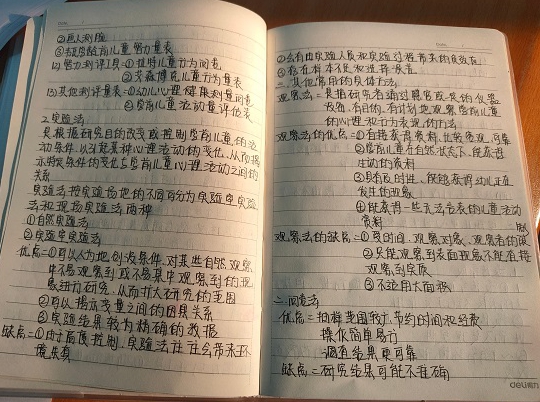 ②画人测验
③韦氏学龄前儿童智力量表
(2)努力测评工具:①拉特儿童行为问卷
②艾森博克儿童行为量表
(3)其他测评量表:①幼儿心理健康测量问卷
②学前儿童活动量评估表
2.实验法
是根据研究目的改变或控制学前儿童的活
动条件,以引起某种心理活动的变化,从而揭
示特定条件的变化与学前儿童心理活动之间的
关系
实验法按实验场地的不同可分为实验室实验
法和现场实验法两种
①自然实验法
②实验室实验法
优点:①可以人为地创设条件,对某些自然观察
中不易观察到或不易集中观察到的现
象进行研究,从而扩大研究的范围
②可以揭示变量之间的因果关系
③实验结果较为精确的数据
缺点:①由于高度控制,实验法往往会带来环
境失真
②会有由实验人员和实验过程带来的实验者
③存在样本误和选择误差
三.其他常用的具体方法
观察法:是指研究者通过感官或一定的仪器
设备,有目的、有计划地观察学前儿童
的心理和行为表现的方法
观察法的优点:①直接获得资料,比较客观、可靠
②学前儿童在自然状态下,能获得
生动的资料
③具有及时性,能够获得幼儿正在
发生的现象
④能获得一些无法言表的儿童活动
资料
观察法的缺点:①受时间、观察对象、观察者的限
②只能观察到表面现象,不能直接
观察到实质
③不适用大面积
二.问卷法
优点:抽样范围较广,节约时间和经费
操作简单易行
调查结果更可靠
缺点:研究结果可能不准确
deli